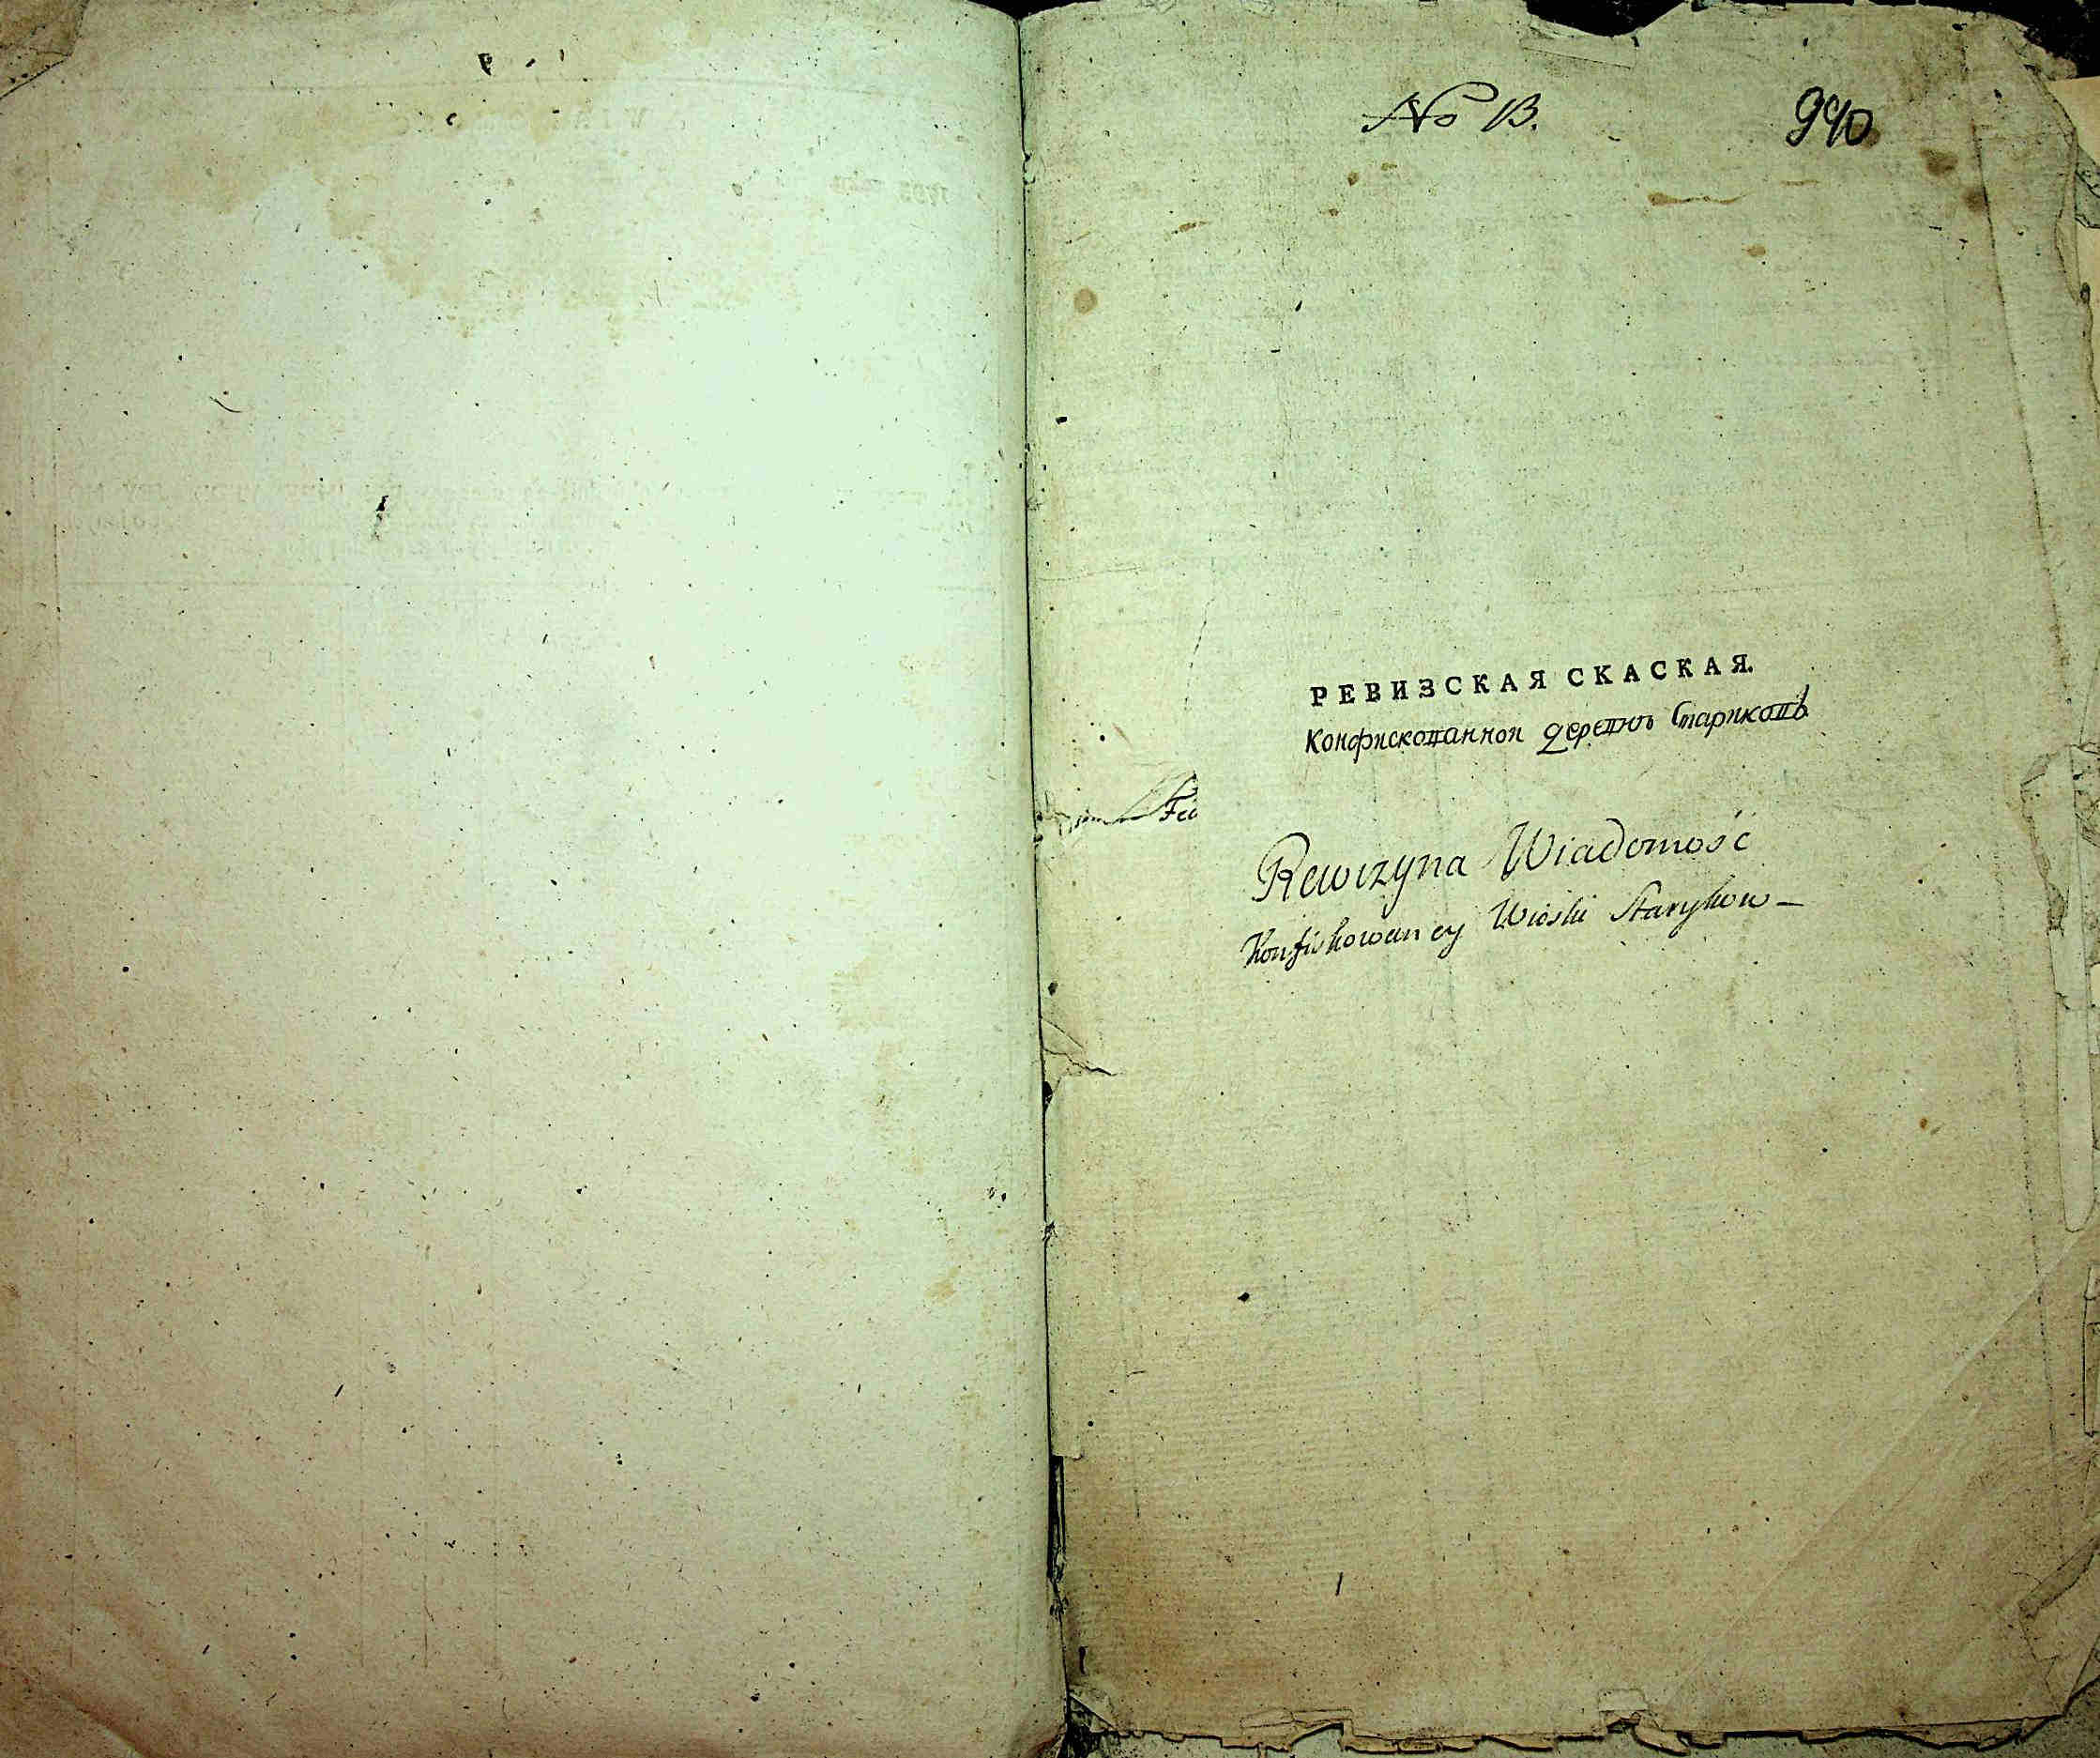 No 13.
990
РЕВИЗСКАЯ СКАСКАЯ.
Конфискованнои деревнѣ Стариковъ
Rewizyna Wiadomość
Konfiskowaney Wioski Starykow –